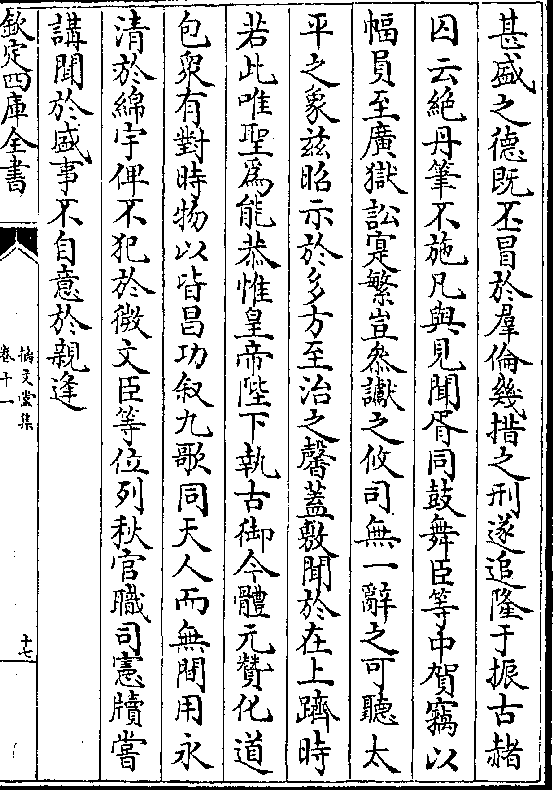 甚盛之德既丕冒於羣倫幾措之刑遂追隆于振古赭
囚云絶丹筆不施凡與見聞胥同鼓舞臣等中賀竊以
幅員至廣獄訟寔繁豈叅讞之攸司無一辭之可聽太
平之象兹昭示於多方至治之馨蓋敷聞於在上躋時
若此唯聖爲能恭惟皇帝陛下執古御今體元贊化道
包衆有對時物以皆昌功叙九歌同天人而無間用永
清於綿宇俾不犯於微文臣等位列秋官職司憲牘嘗
講聞於盛事不自意於親逢
欽定四庫全書
卷十一
十七